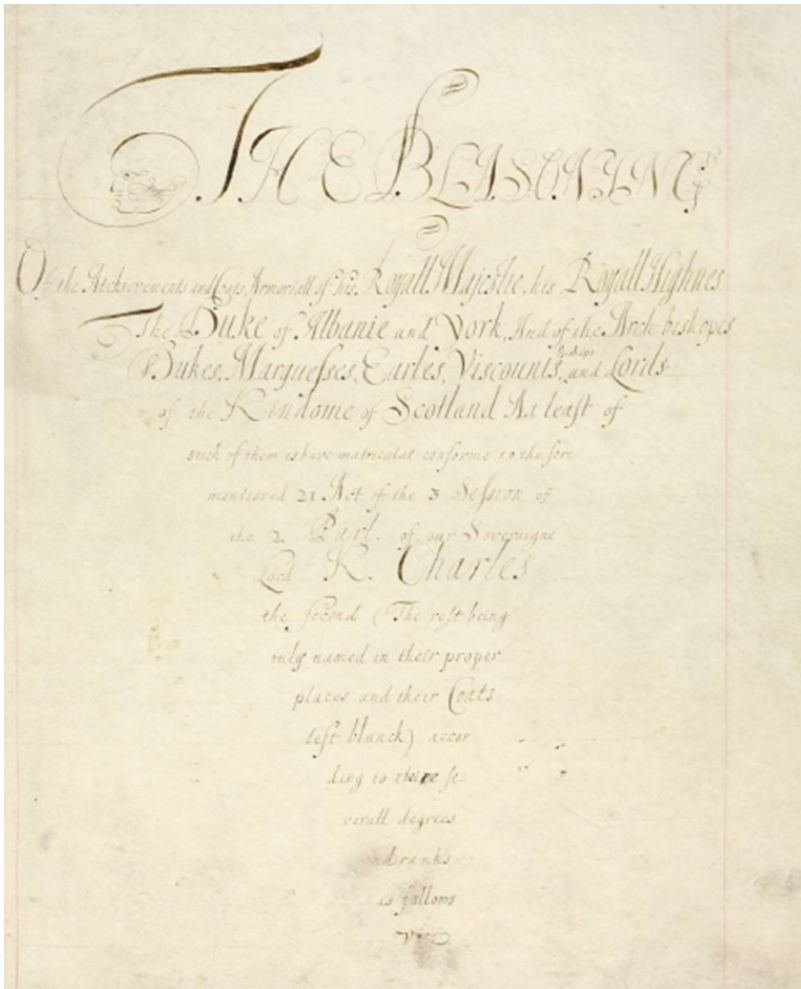 THE BLASONYNG
Of the Atcheivements and Coats Armoriall of his Royall Majestie, his Royall Highnes
The Duke of Albanie and York, And of the Arch bishopes
Dukes, Marquesses, Earles, Viscounts, Bishops and Lords
of the Kindome of Scotland At least of
such of them as have matriculat conforme to the fore
mentioned 21 Act of the 3 Session of
the 2 Parl. of our Soveraigne
Lord K. Charles
the second (The rest being
only named in their proper
places and their Coats
left blanck) accor
ding to their se-
verall degrees
and ranks
as fallows
viz